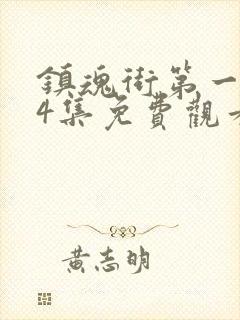 鎮魂街第一
4集免費觀
黃志明